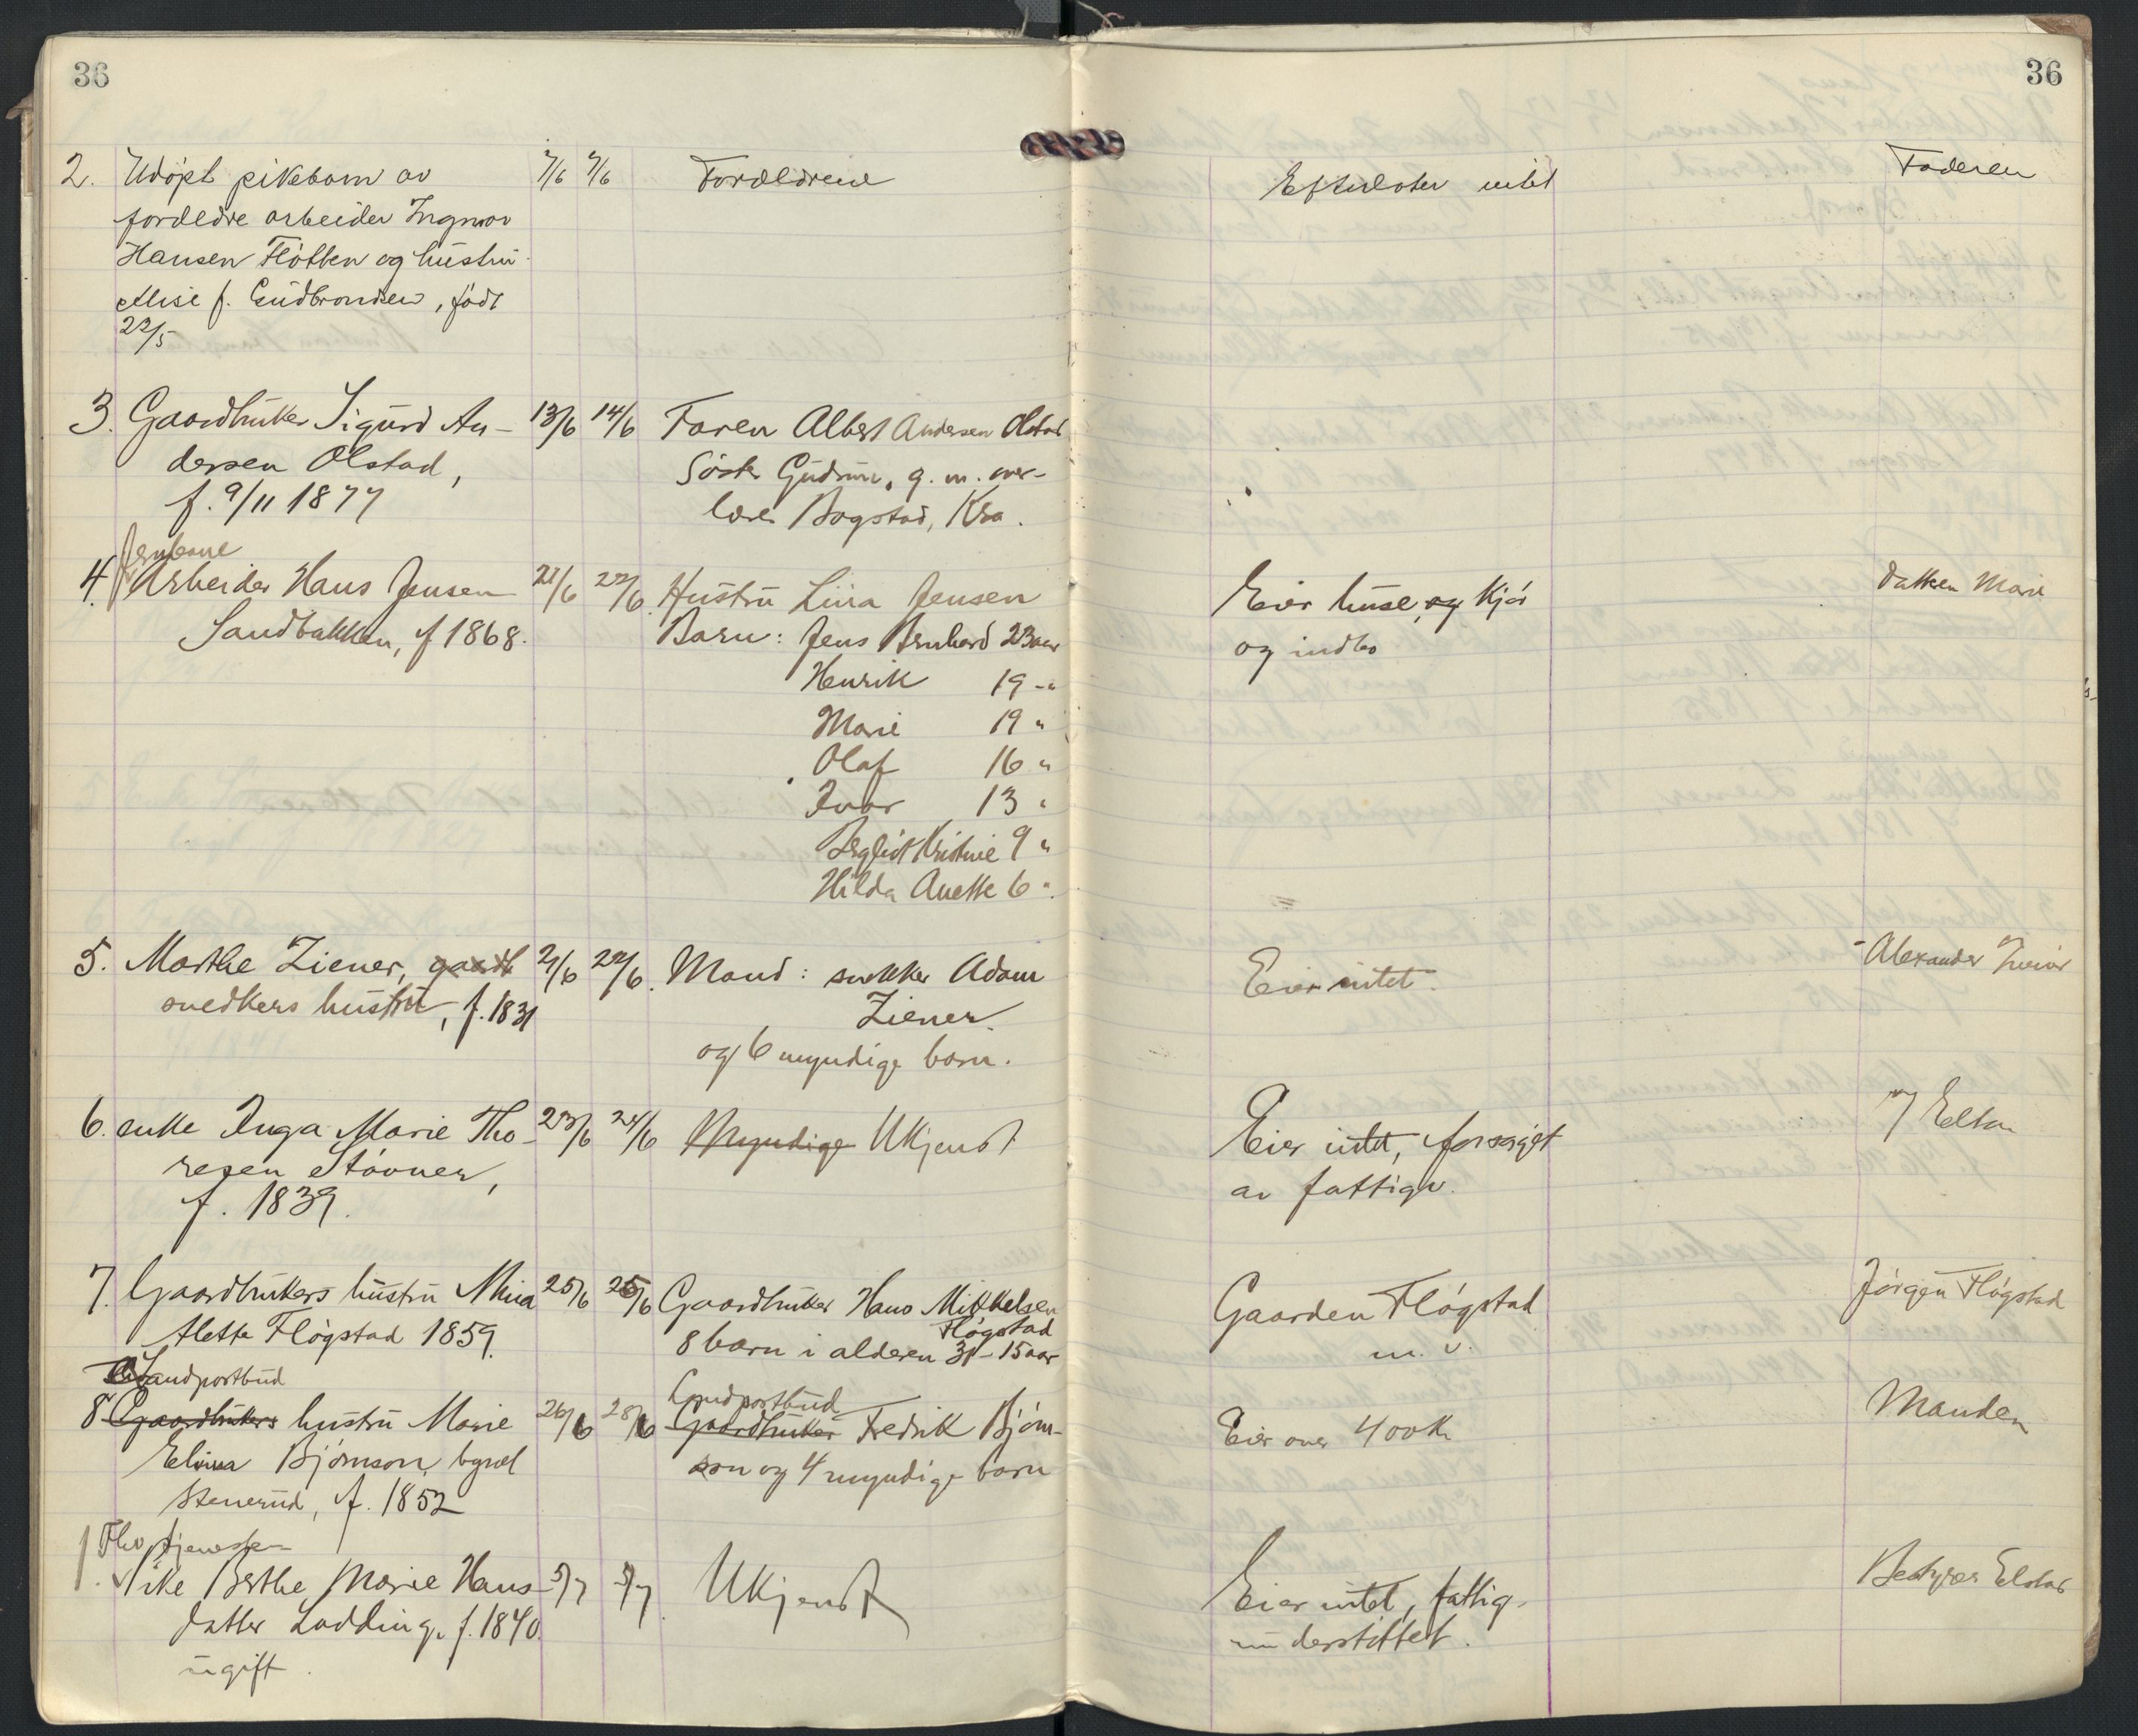 36
36
2. Udøpt pikebarn av 7/6 7/6 Forældrene Efterlater intet Faderen
forældre arbeider Ingmar
Hansen Fløtten og hustru
Alise f. Gudbrandsen, født
22/5
3. Gaardbruker Sigurd An- 13/6 14/6 Faren Albert Andersen Olstad
dersen Olstad, Søster Gudrun, g. m. over-
f. 9/11 1877 lærer Bogstad, Kra.
Jernbane
4. Arbeider Hans Jensen 21/6 22/6. Hustru Lina Jensen Eier huse, og kjør Datteren Marie
Sandbakken, f 1868. Barn: Jens Bernhard 23 aar og indbo
Henrik 19 -"
Marie 19 "
Olaf 16 "
Ivar 13 "
Bergliot Kristine 9 "
Hilda Anette 6 ".
5. Marthe Ziener, gaardb 21/6 22/6. Mand: snekker Adam Eier intet. Alexander
snedkers hustru, f. 1831 Ziener.
og 6 myndige barn.
6. enke Inga Marie Tho- 23/6 24/6 Myndige Ukjendt Eier intet, forsørget
resen Støvner, av fattigv.
f. 1839.
7. Gaardbrukers hustru Mina 25/6 25/6 Gaardbruker Hans Mikkelsen Gaarden Fløgstad Jørgen Fløgstad
Alette Fløgstad 1859. Fløgstad
8 barn i alderen 31 - 15 aar m. v.
Landpostbud Landpostbud
8 Gaardbrukers hustru Marie 26/6 28/6 Gaardbruker Fredrik Bjørn- Eier over 400 kr Manden
Elvina Bjørnson, bynavn son og 4 myndige barn
Stenerud, f. 1852
Fhv tjeneste-
1. pike Berthe Marie Hans- 5/7 5/7. Ukjendt Eier intet, fattig- Bestyrer Elstad
datter Lodding, f. 1840. understøttet.
ugift.